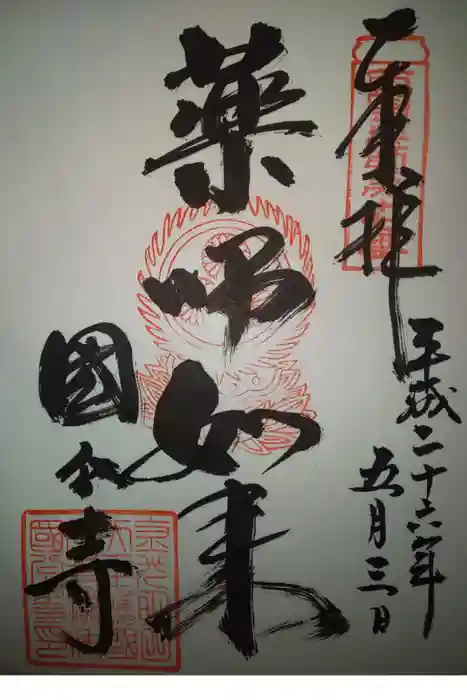 奉拝
平成二十六年
五月三日
薬師如来
國分寺